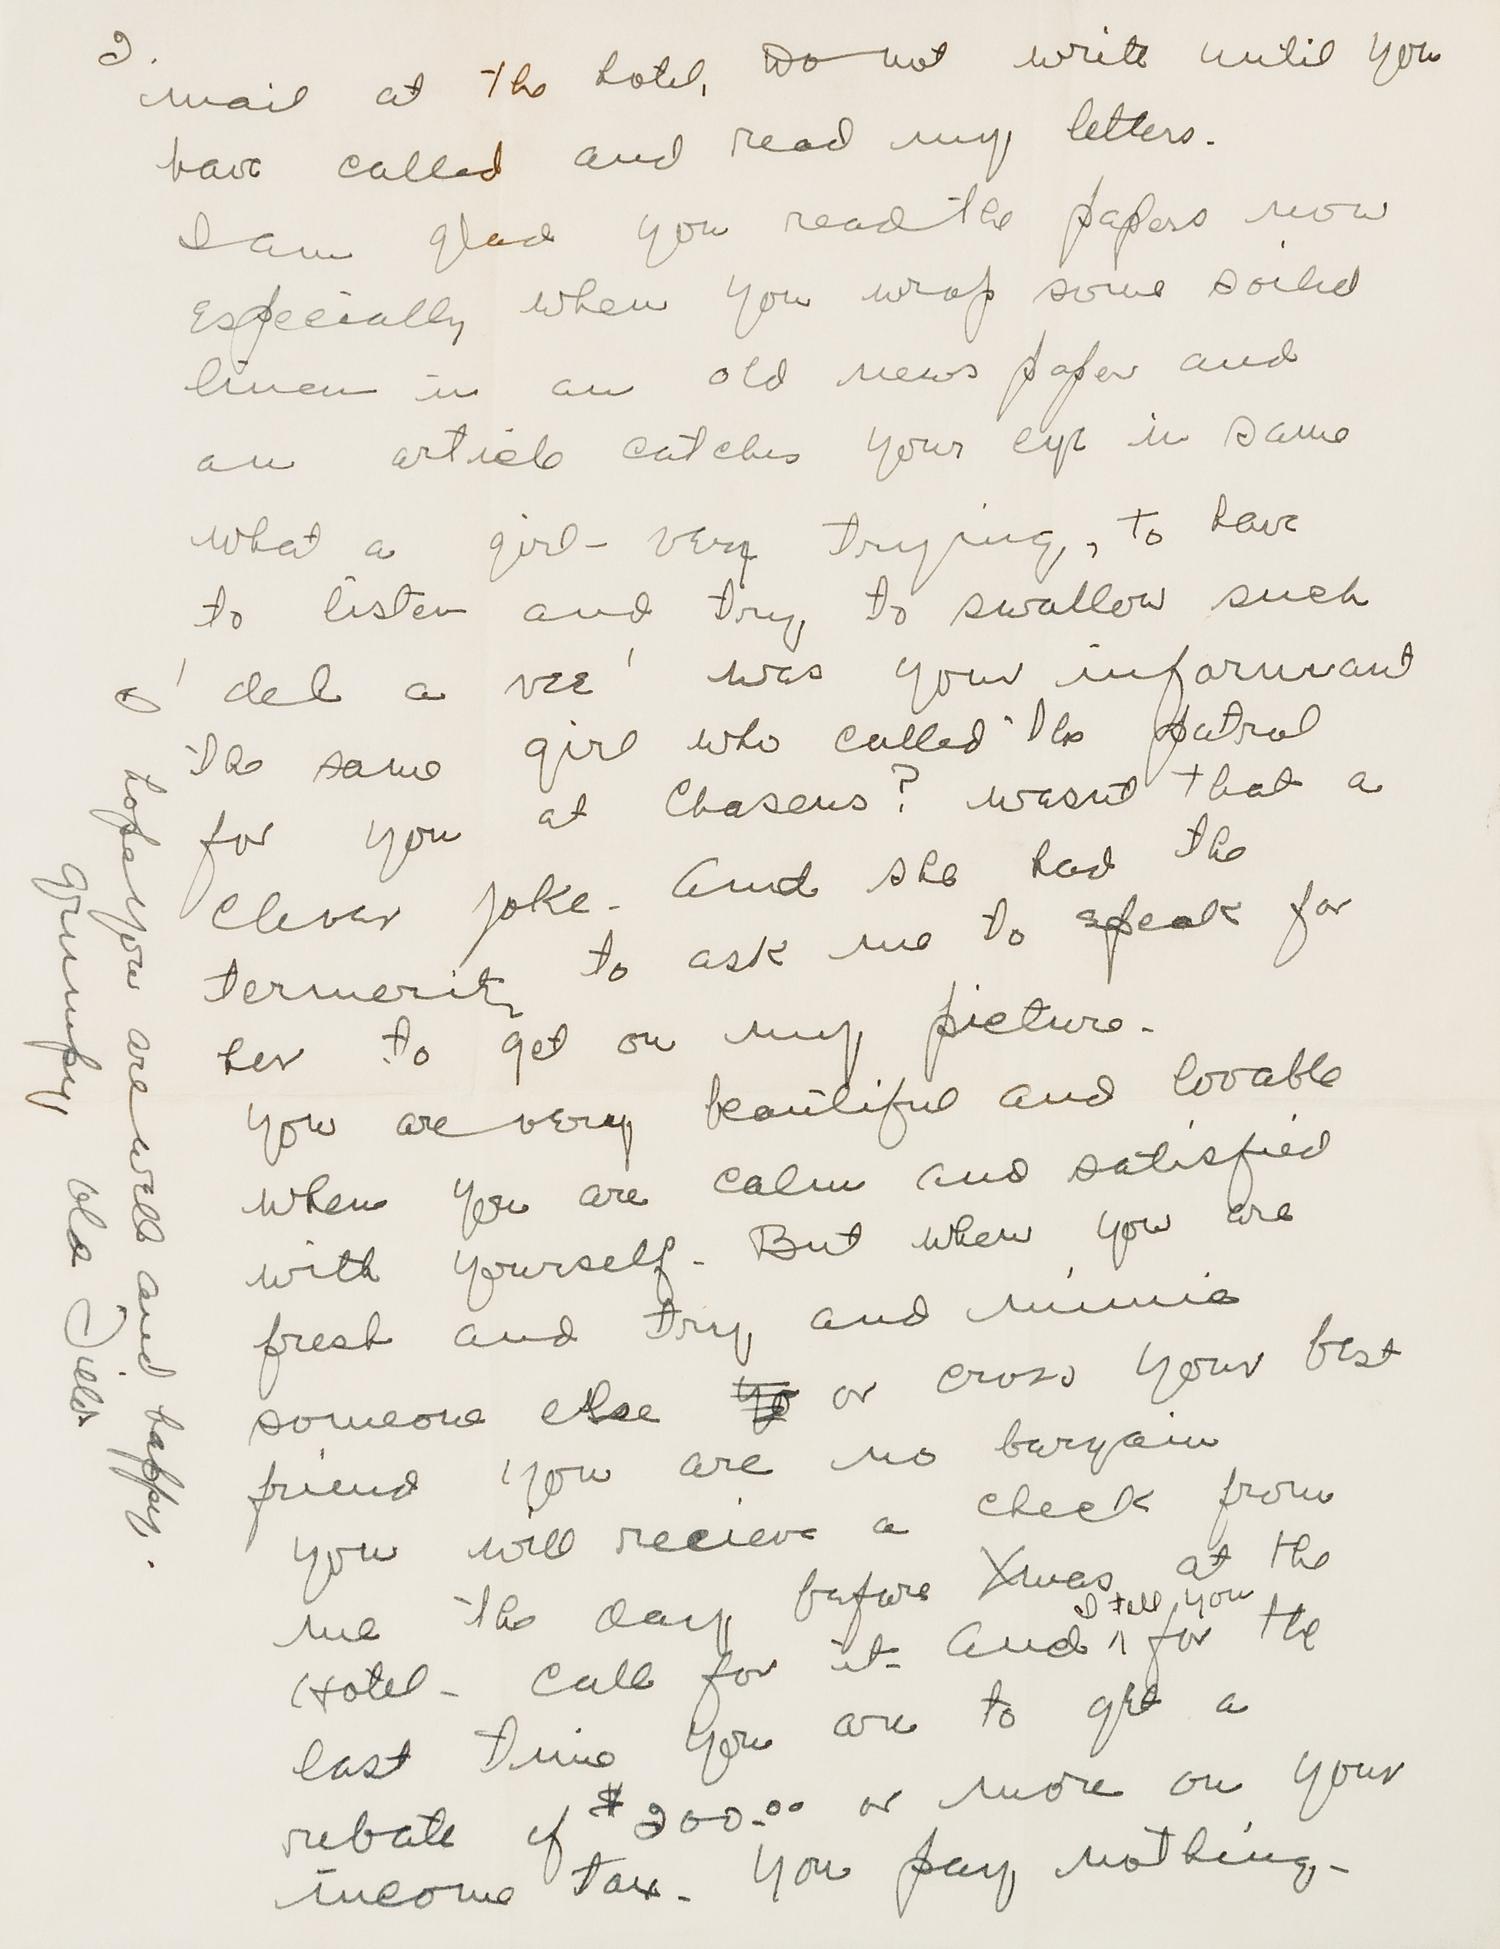 2.
mail at the hotel. Do not write until you
have called and read my letters.
I am glad you read the papers now
Especially when you wrap some soiled
linen in an old news paper and
an article catches your eye in same
what a girl - very trying, to have
to listen and try to swallow such
'del a vee' was your informant
the same girl who called the patrol
for you at Chasens? wasnt that a
clever joke - And she had the
termerity to ask me to speak for
her to get on my picture -
you are very beautiful and lovable
when you are calm and satisfied
with yourself - But when you are
fresh and try and mimic
someone else or cross your best
friend you are no bargain
you will recieve a check from
me the day before Xmas at the
Hotel - call for it - And I tell you for the
last time you are to get a
rebate of $200.00 or more on your
income tax - you pay nothing -
I hope you are well and happy.
Grumpy old Fields